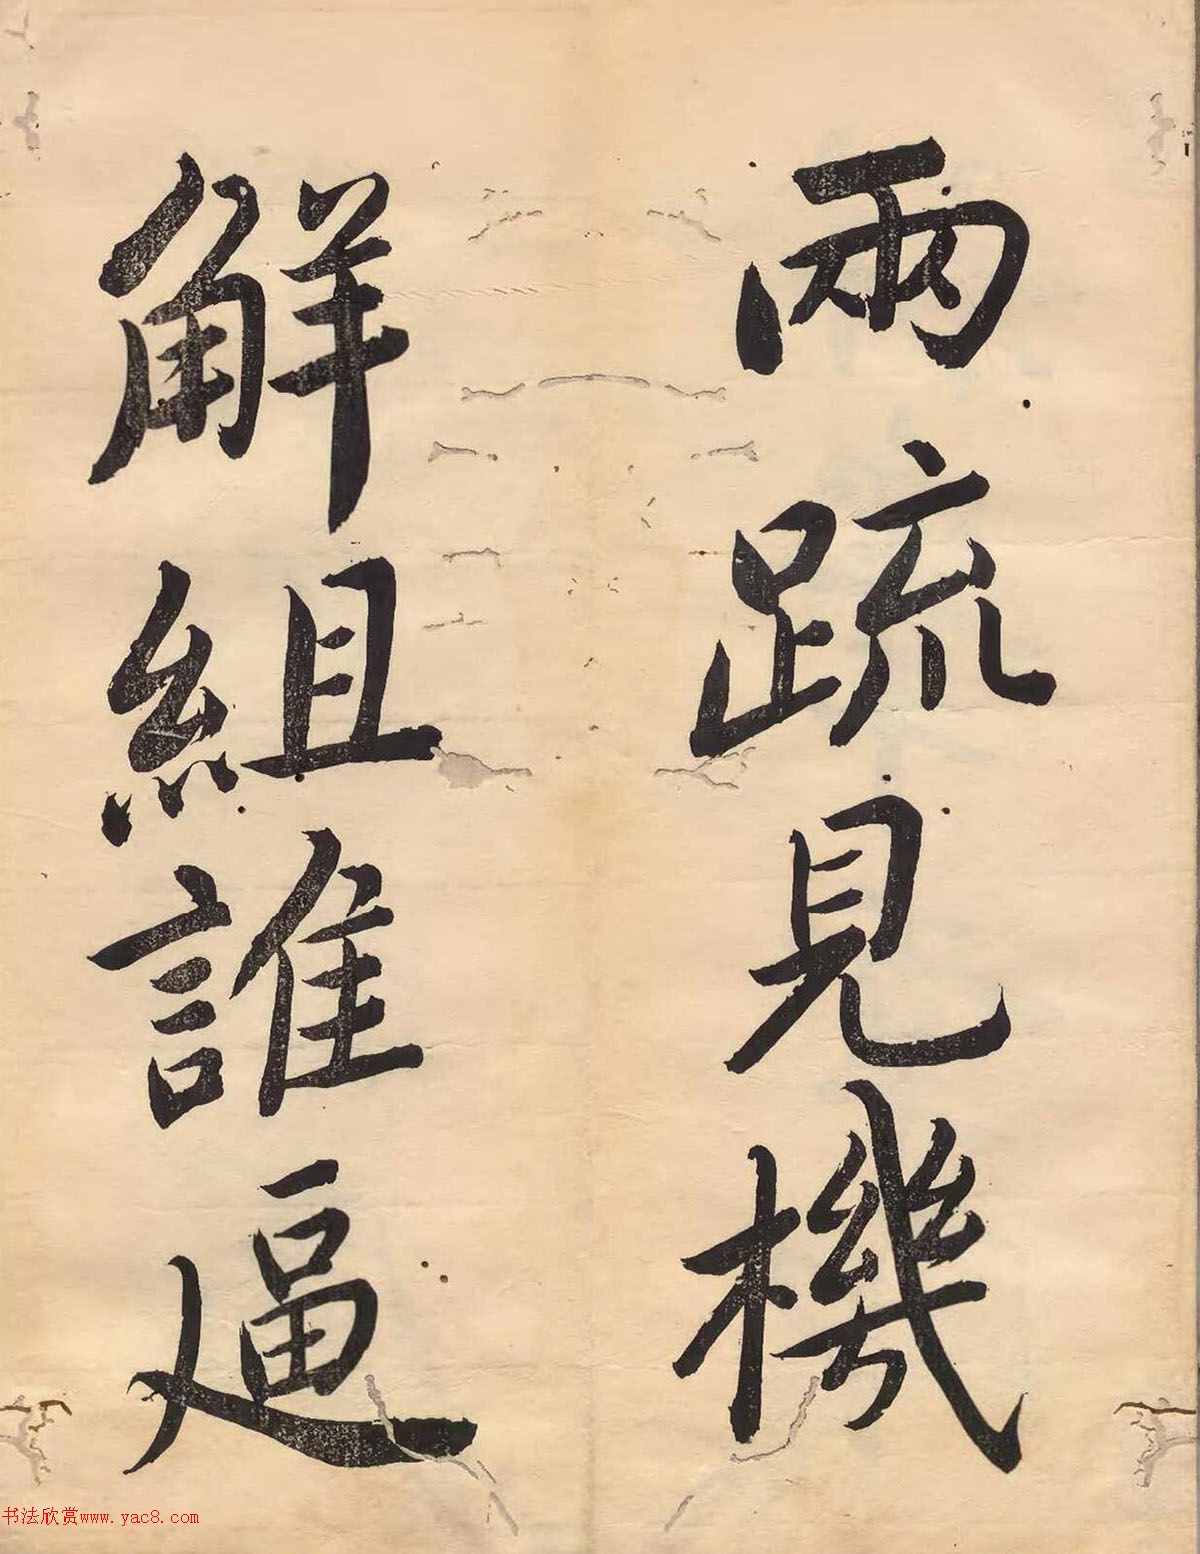 兩疏見機
解組誰逼
书法欣赏www.yac8.com